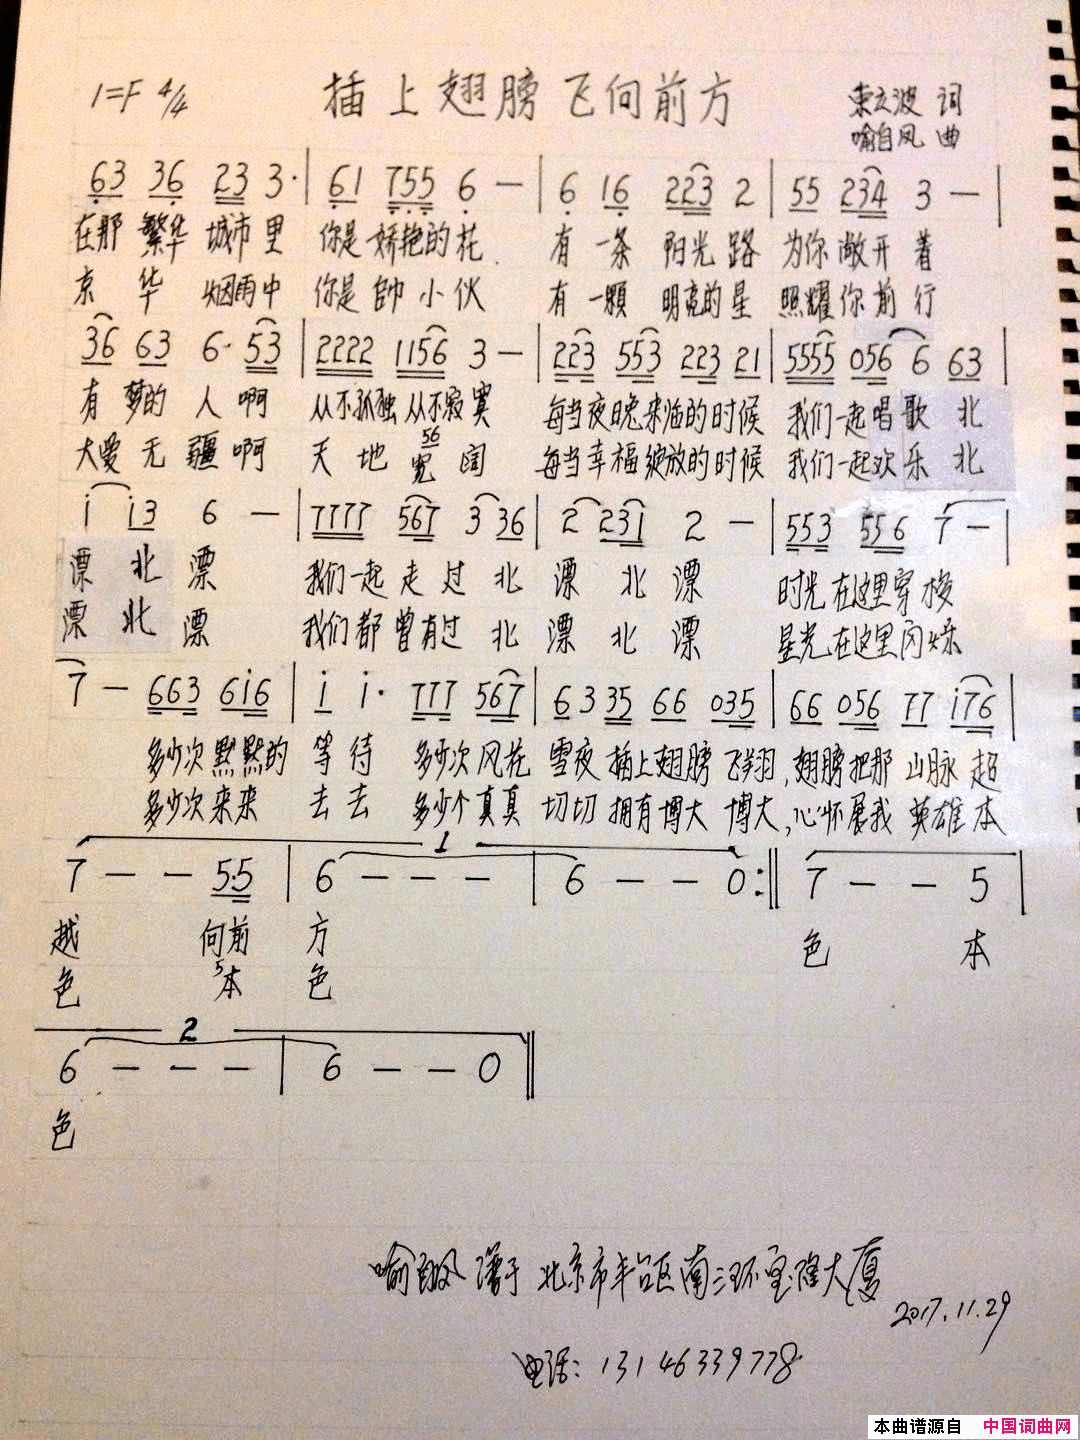 1=F 4/4 插上翅膀飞向前方 束立波 词
喻自风 曲
63 36 23 3· | 61 755 6 — | 6 16 223 2 | 55 234 3 — |
在那 繁华 城市 里 你是 娇艳的 花 有 一条 阳光 路 为你 敞开 着
京 华 烟雨中 你是 帅 小 伙 有 一颗 明亮的 星 照耀 你 前 行
36 63 6· 53 | 2222 1156 3 — | 223 553 223 21 | 5555 056 6 63 |
有 梦的 人 啊 从不孤独 从不寂寞 每当夜晚来临的时候 我们一起唱歌 北
56
大爱 无 疆 啊 天 地 宽 阔 每当幸福绽放的时候 我们一起欢乐 北
i i3 6 — | 7777 567 3 36 | 2 231 2 — | 553 556 7 — |
漂 北 漂 我们一起 走 过 北 漂 北 漂 时光 在这里 穿梭
漂 北 漂 我们 都 曾有过 北 漂 北 漂 星光 在这里 闪烁
7 — 663 6i6 | i i· 777 567 | 6 3 35 66 035 | 66 056 77 i76 |
多少次 默默的 等 待 多少次 风花 雪夜 插上翅膀 飞翔, 翅膀 把那 山脉 超
多少次 来来 去 去 多少个 真真 切切 拥有 博大 博大, 心怀 展我 英雄 本
1
7 — — 5·5 | 6 — — — | 6 — — 0 :‖ 7 — — 5 |
越 向前 方 色 本
5
色 本 色
2
6 — — — | 6 — — 0 ‖
色
喻自风 谱于 北京市丰台区南三环宝隆大厦
2017.11.29
电话: 13146339778
本曲谱源自 中国词曲网